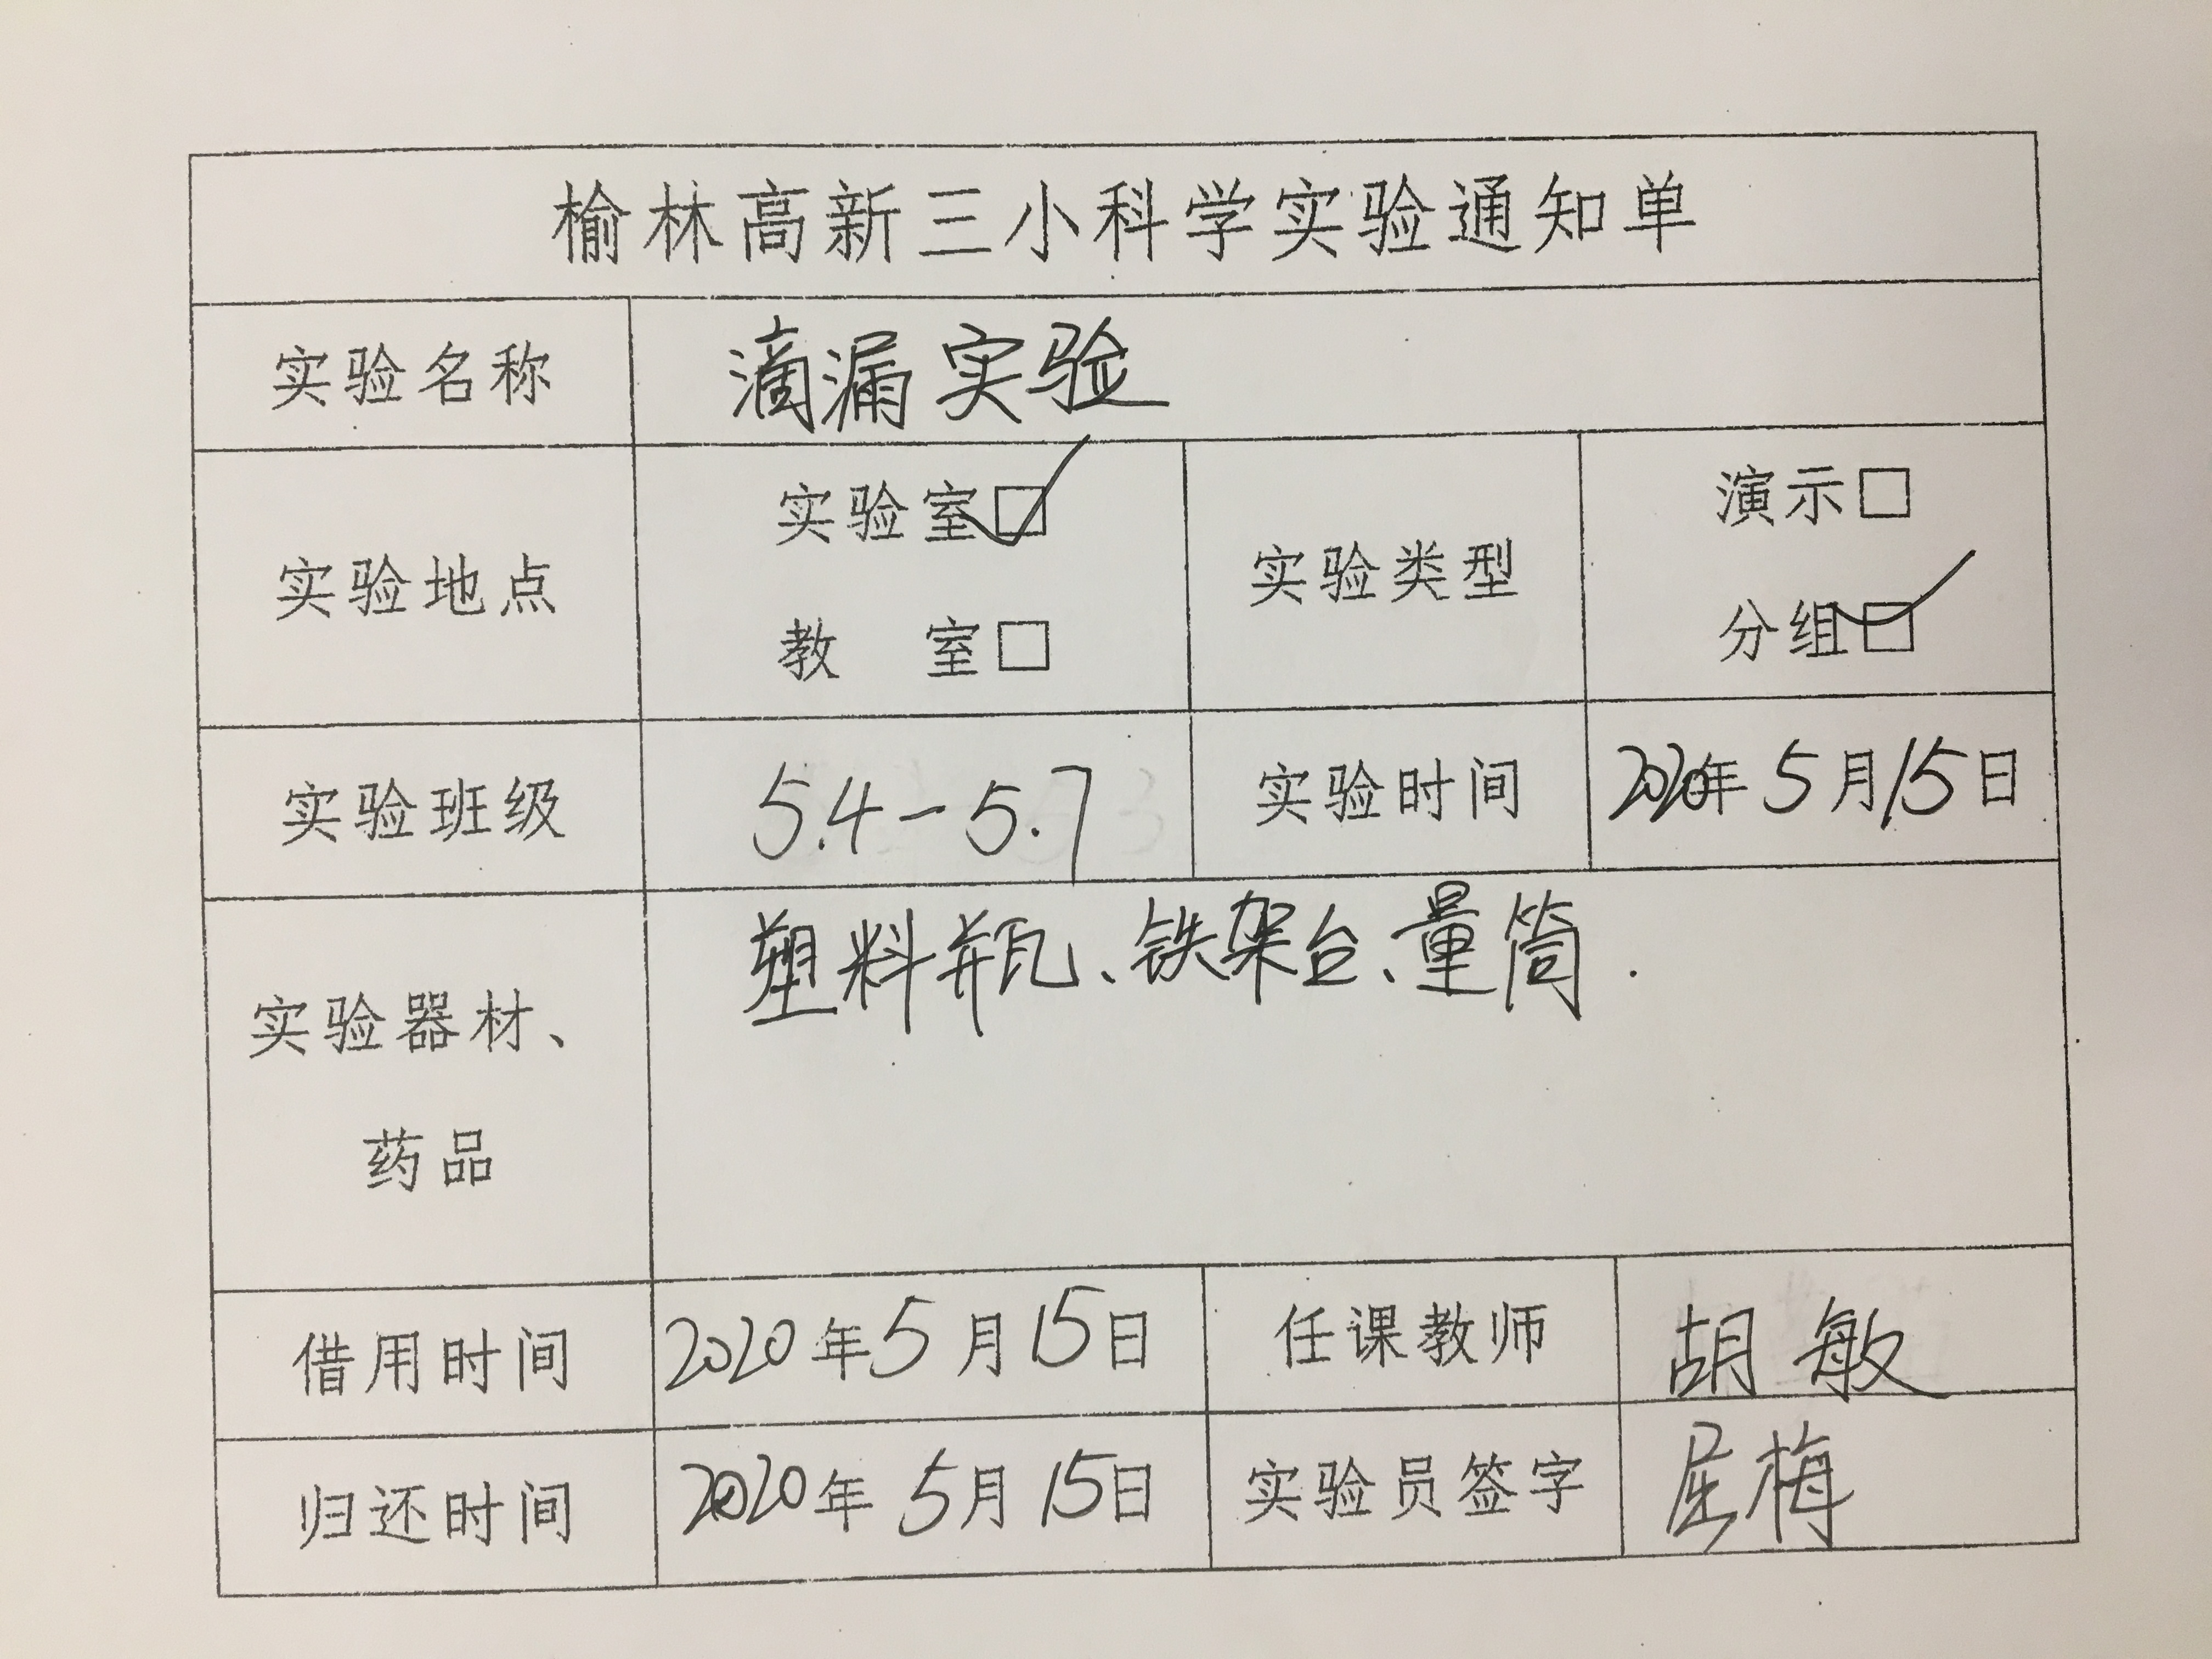 榆林高新三小科学实验通知单
实验名称 滴漏实验
实验地点 实验室☑ 教 室□ 实验类型 演示□ 分组☑
实验班级 5.4-5.7 实验时间 2020年5月15日
实验器材、药品 塑料瓶、铁架台、量筒.
借用时间 2020年5月15日 任课教师 胡敏
归还时间 2020年5月15日 实验员签字 屈梅